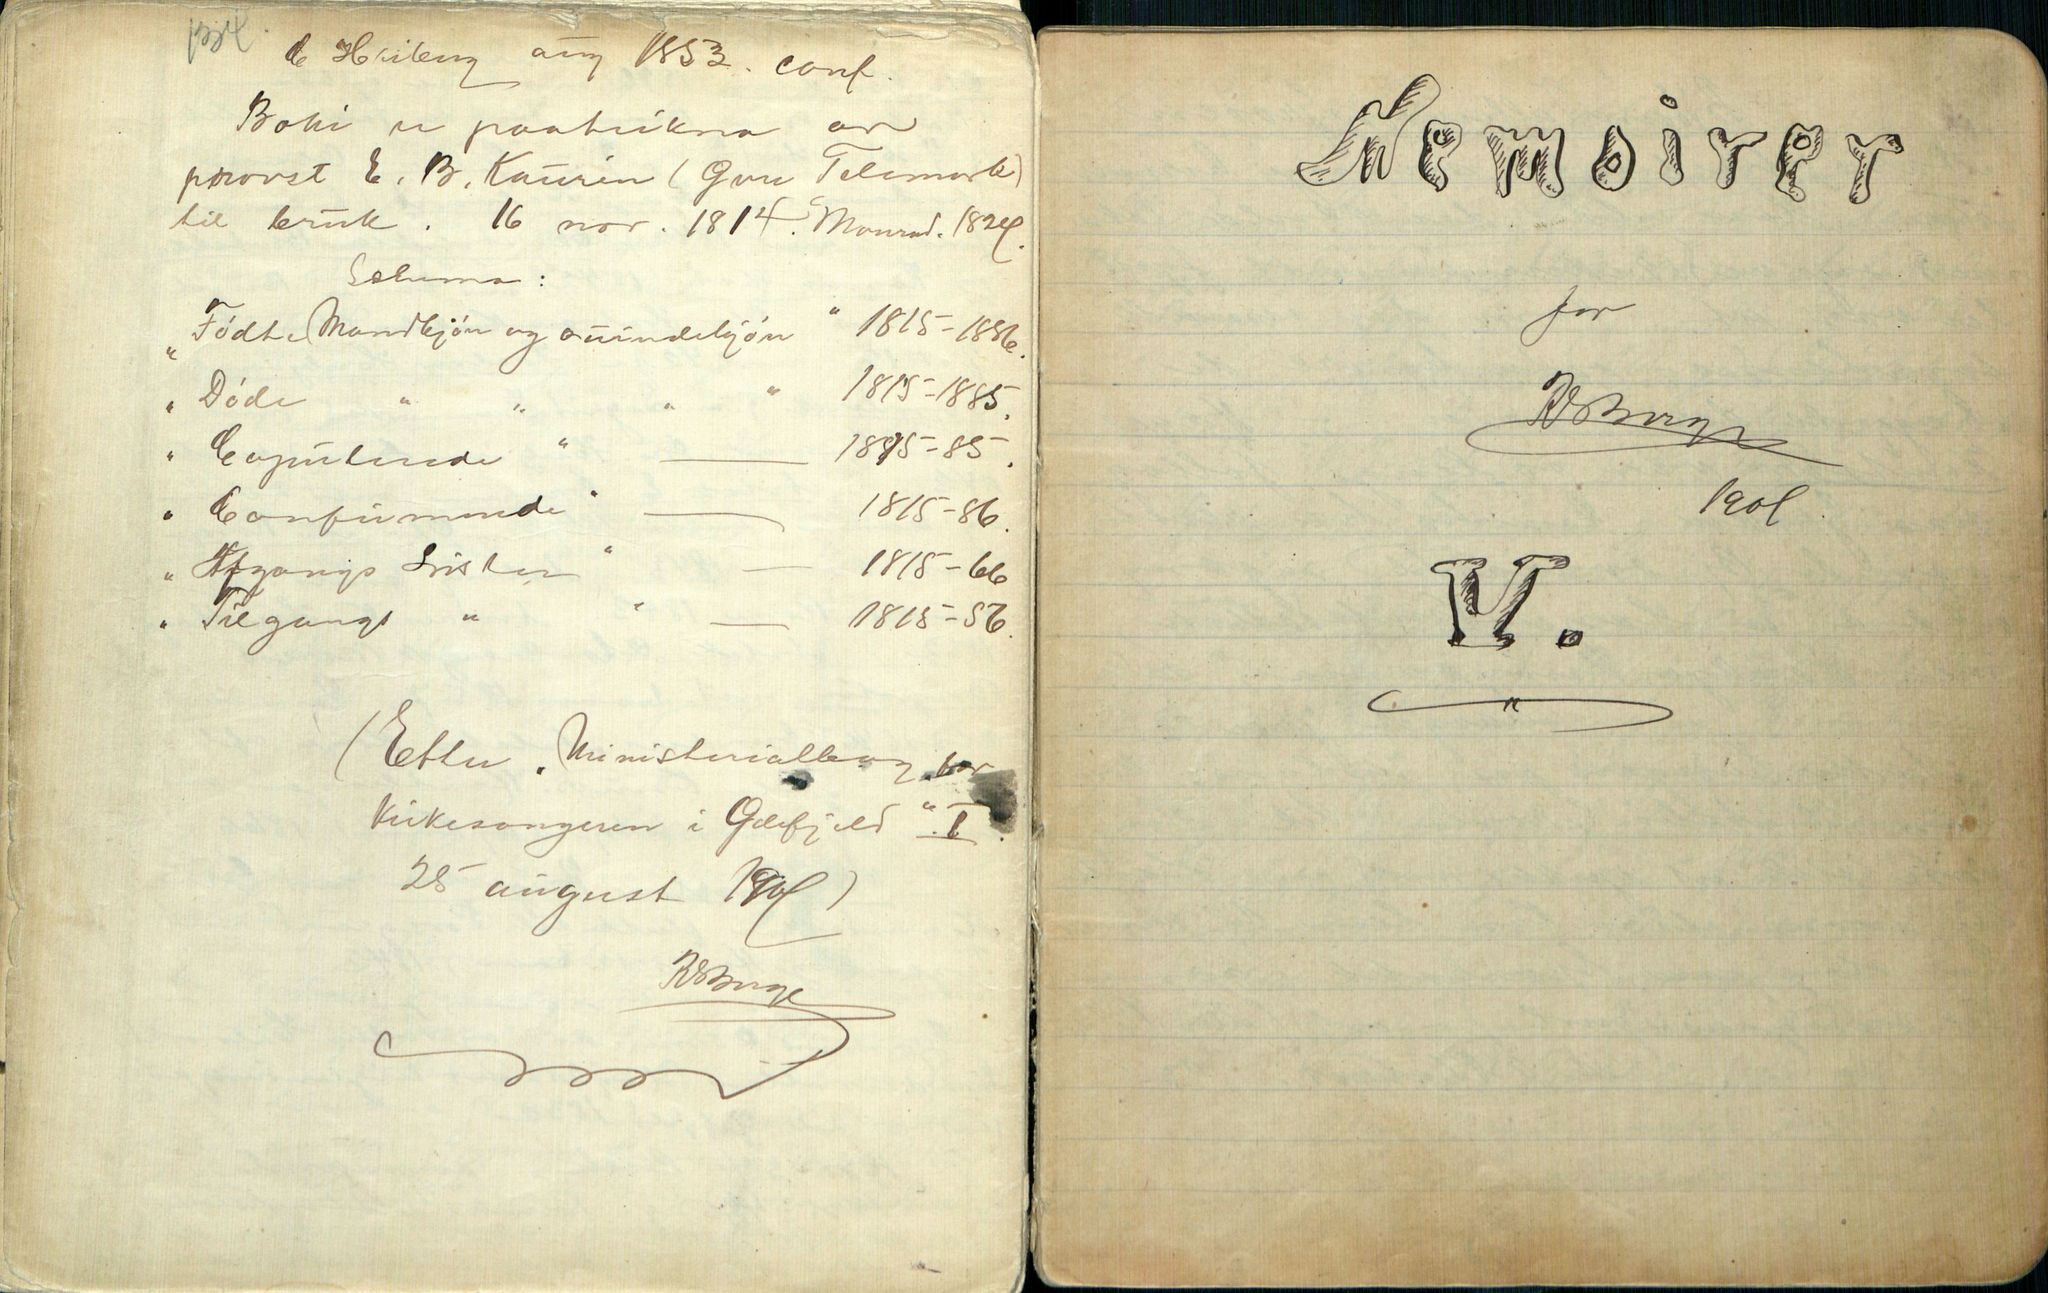 de Heiberg aug 1853. conf.
Boki er paatrikna av
provst E. B. Kaurin (Gvre Telemark)
til bruk. 16 nov. 1814. Monrad. 1824.
Schema:
"Fødte Mandkjøn og qvindekjøn " 1815-1886.
" Døde " " " " 1815-1885.
" Copulerede " — 1815-85.
" Confirmerede " — 1815-86.
" Afgangs Lister " — 1815-66
" Tilgangs " " — 1815-56.
(Etter "Ministerialbog for
Kirkesangeren i Gdefjeld" I.
25 august 1904)
RSBerge
Memoirer
for
RSBerge
1904
V.